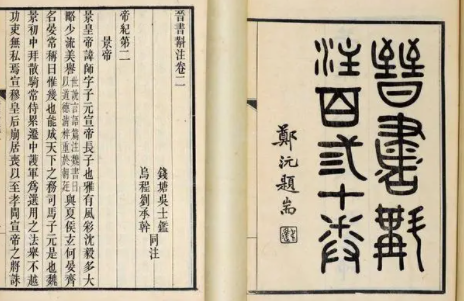 晉書斠
注百弎十卷
鄭沅題耑
晉書斠注卷二
錢塘吳士鑑
烏程劉承幹
同注
帝紀第二
景帝
景皇帝諱師字子元宣帝長子也雅有風彩沈毅多大
略少流美譽世說言語篇注魏書曰以道德清粹重於朝廷與夏侯玄何晏齊
名晏常稱曰惟幾也能成天下之務司馬子元是也魏
景初中拜散騎常侍累遷中護軍為選用之法舉不越
功吏無私焉宣穆皇后崩居喪以至孝聞宣帝之將誅